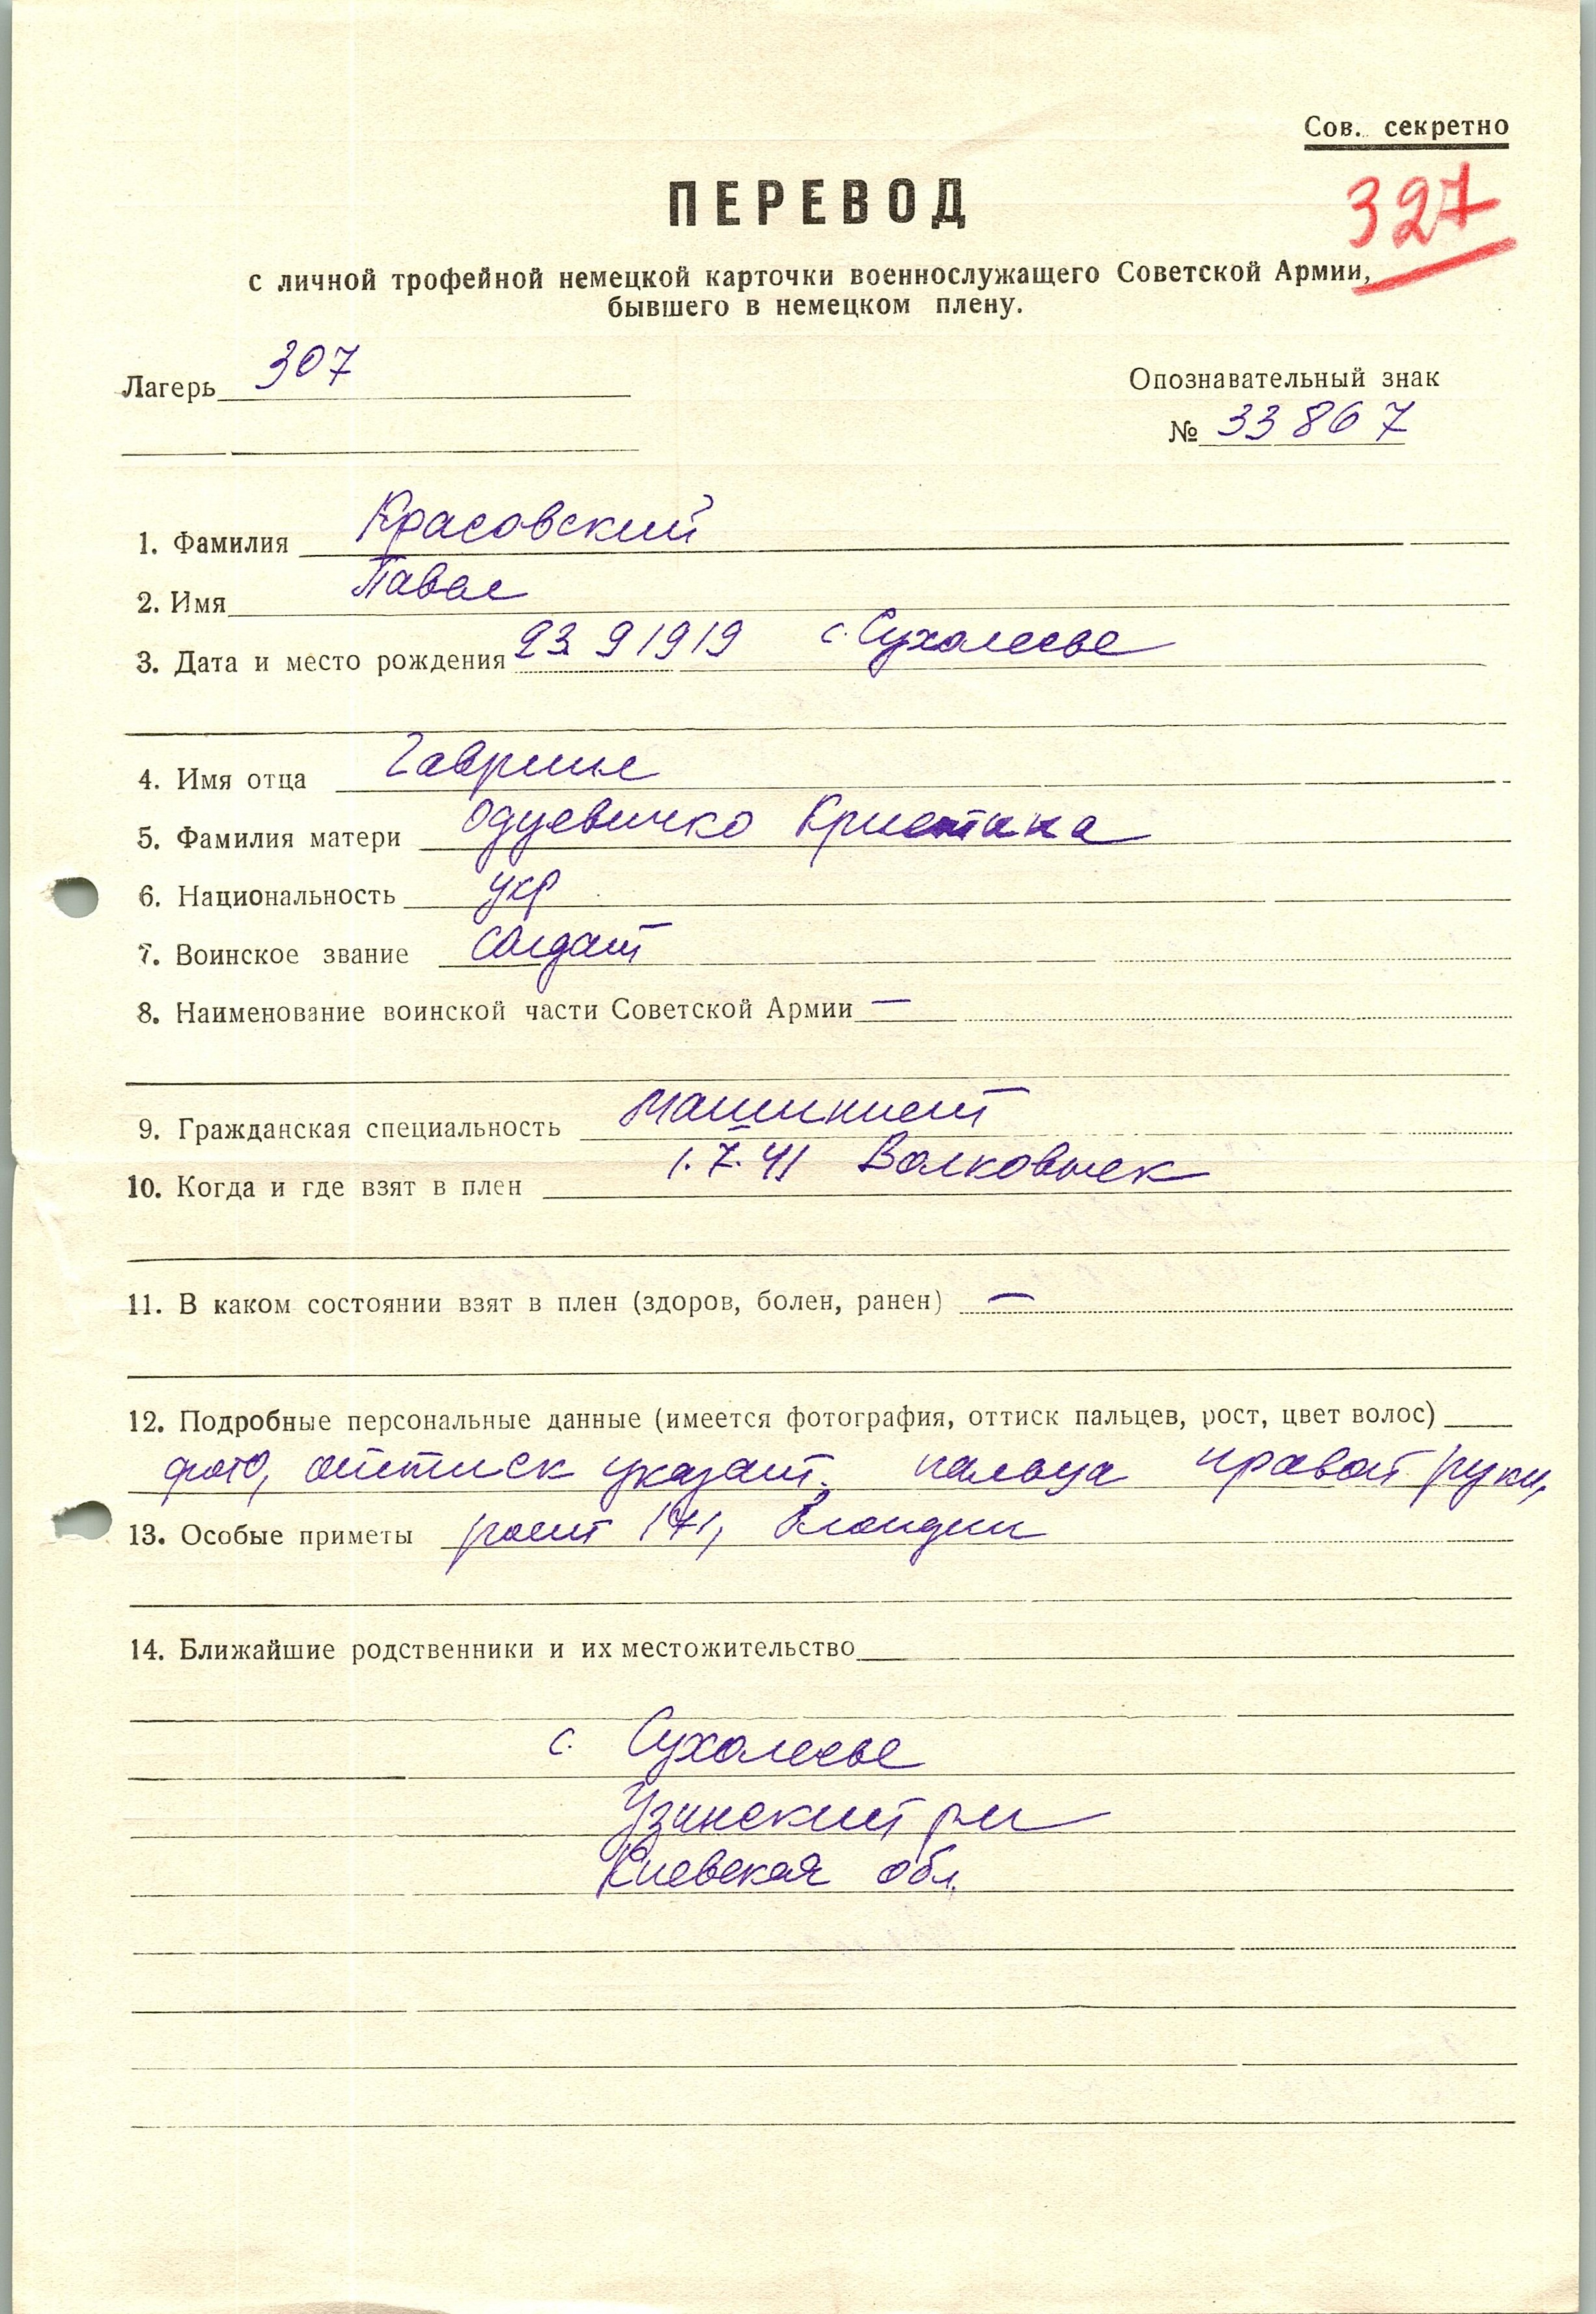 Сов. секретно
ПЕРЕВОД
327
с личной трофейной немецкой карточки военнослужащего Советской Армии,
бывшего в немецком плену.
Лагерь 307
Опознавательный знак
№ 33867
1. Фамилия Красовский
2. Имя Павел
3. Дата и место рождения 23 9 1919 с. Сухолесье
4. Имя отца Гавриил
5. Фамилия матери Кристина
6. Национальность укр
7. Воинское звание солдат
8. Наименование воинской части Советской Армии —
9. Гражданская специальность машинист
10. Когда и где взят в плен 1.7.41 Волковыск
11. В каком состоянии взят в плен (здоров, болен, ранен) —
12. Подробные персональные данные (имеется фотография, оттиск пальцев, рост, цвет волос)
фото, оттиск указат. пальца правой руки,
13. Особые приметы рост 171, блондин
14. Ближайшие родственники и их местожительство
с. Сухолесье
Узинский р-н
Киевская обл.